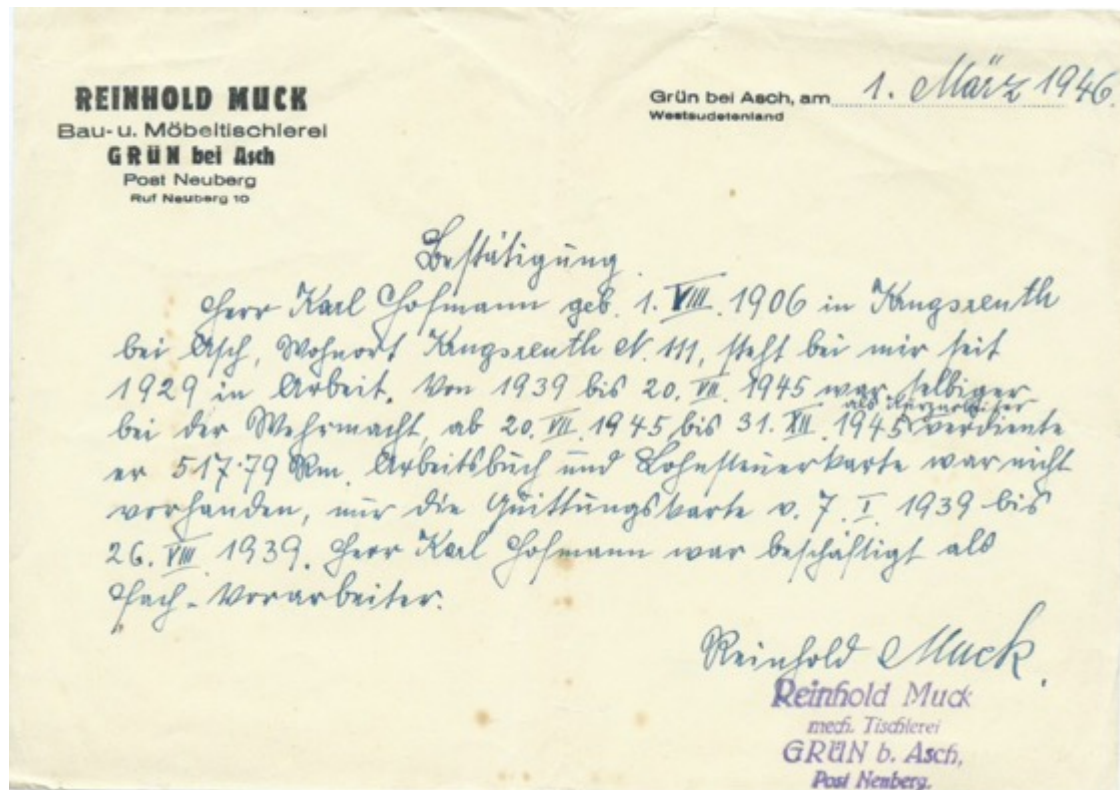 REINHOLD MUCK
Bau- u. Möbeltischlerei
GRÜN bei Asch
Post Neuberg
Ruf Neuberg 10
Grün bei Asch, am 1. März 1946.
Westsudetenland
Bestätigung.
Herr Karl Hofmann geb. 1. VIII. 1906 in Krugsreuth
bei Asch, Wohnort Krugsreuth N. 111, steht bei mir seit
1929 in Arbeit. Von 1939 bis 20. VII. 1945 war selbiger
bei der Wehrmacht, ab 20. VII. 1945 bis 31. XII. 1945 verdiente
als
er 517.79 Rm. Arbeitsbuch und Lohnsteuerkarte war nicht
vorhanden, nur die Quittungskarte v. 7. I. 1939 bis
26. VIII. 1939. Herr Karl Hofmann war beschäftigt als
Fach-Vorarbeiter.
Reinhold Muck.
Reinhold Muck
mech. Tischlerei
GRÜN b. Asch,
Post Neuberg.